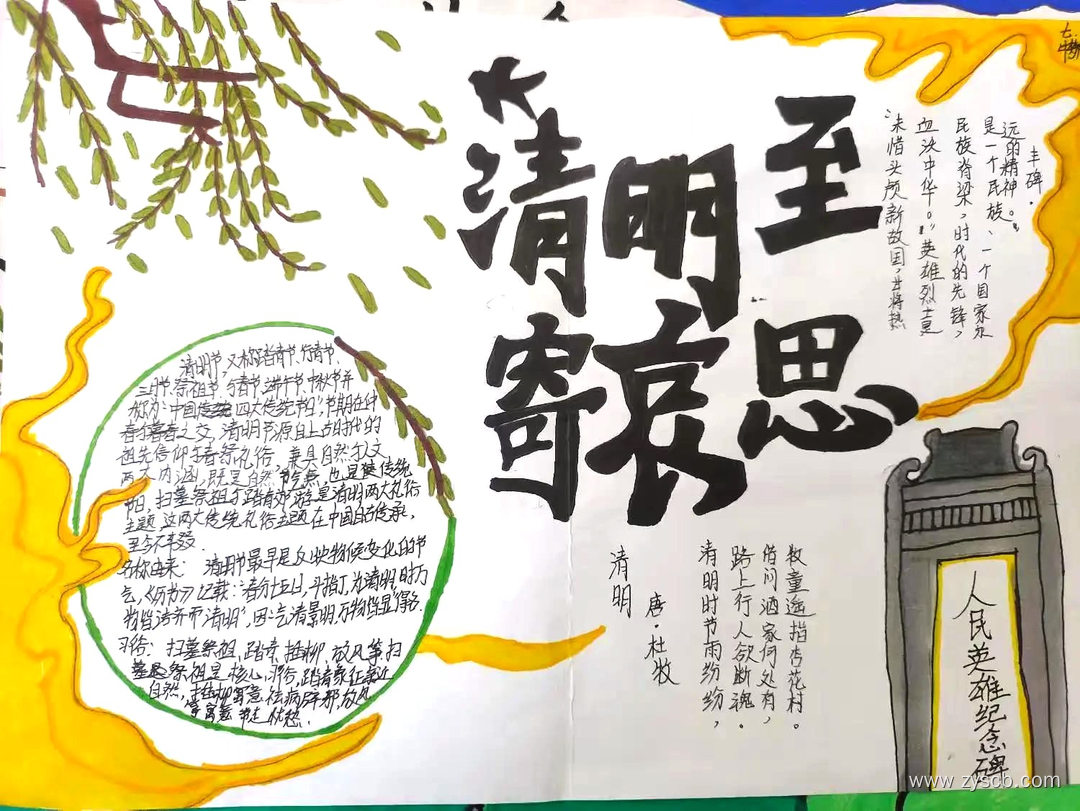 清明至
寄哀思
七.
"未惜头颅新故国,甘将热
血沃中华。"英雄烈士是
民族脊梁,时代的先锋,
是一个民族、一个国家永
远的精神。
丰碑.
清明节,又称踏青节、行青节、
三月节、祭祖节,与春节、端午节、中秋节并
称为"中国传统四大传统节日",节期在仲
春与暮春之交。清明节源自上古时代的
祖先信仰与春祭礼俗,兼具自然与人文
两大内涵,既是自然节气,也是传统
节日,扫墓祭祖与踏青郊游是清明两大礼俗
主题,这两大传统礼俗主题在中国自古传承,
至今不辍.
名称由来: 清明节最早是反映物候变化的节
气,《历书》记载:"春分十五日,斗指丁,为清明,时万
物皆洁齐而清明",因气清景明,万物皆显得名.
习俗: 扫墓祭祖、踏青、插柳、放风筝、扫
墓祭祖是核心习俗,踏青象征亲近
自然,插柳寓意祛病辟邪,放风
筝寓意
清明
唐·杜牧
清明时节雨纷纷,
路上行人欲断魂。
借问酒家何处有,
牧童遥指杏花村。
人民英雄纪念碑
www.zyscb.com